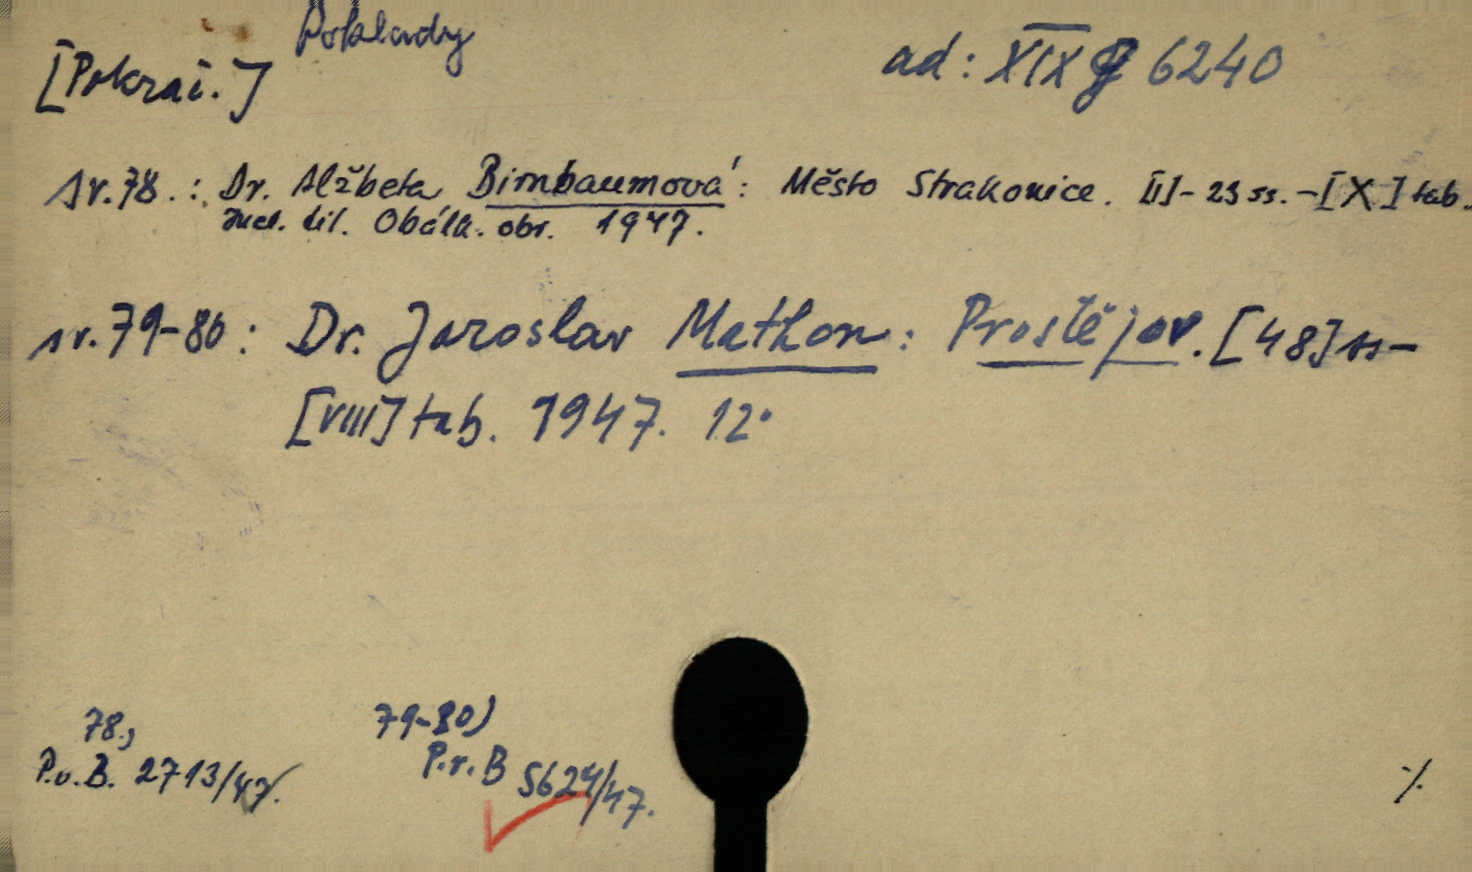 Poklady
[Pokrač.] ad: XIX g 6240
sv. 78.: Dr. Alžbeta Birnbaumová: Město Strakonice. [I]- 23 ss. -[X] tab.
Incl. tit. Obálk. obr. 1947.
sv. 79-80: Dr. Jaroslav Mathon: Prostějov. [48] ss-
[VIII] tab. 1947. 12°
78., 79-80)
P.v.B. 2713/47. P.v.B 5624/47.
·/.